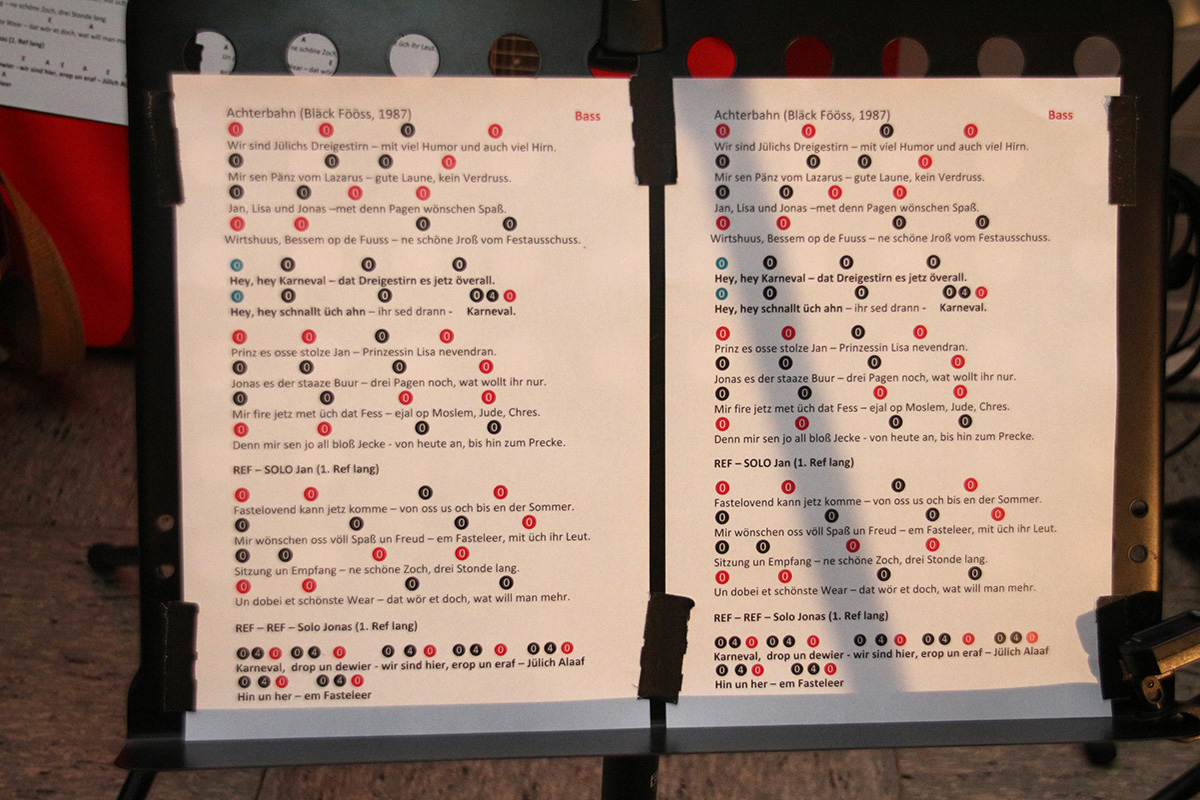 ne schöne Zoch, drei Stonde lang.
E A
e Wear – dat wör et doch, wat will man
(1. Ref lang)
E A E A E
ewier - wir sind hier, erop un eraf – Jülich Alaaf
A
leer
A
A
ne schöne Zoch
Wear – dat wö
üch ihr Leut.
Achterbahn (Bläck Fööss, 1987) Bass
0 0 0 0
Wir sind Jülichs Dreigestirn – mit viel Humor und auch viel Hirn.
0 0 0 0
Mir sen Pänz vom Lazarus – gute Laune, kein Verdruss.
0 0 0 0
Jan, Lisa und Jonas –met denn Pagen wönschen Spaß.
0 0 0 0
Wirtshuus, Bessem op de Fuuss – ne schöne Jroß vom Festausschuss.
0 0 0 0
Hey, hey Karneval – dat Dreigestirn es jetz överall.
0 0 0 0 4 0
Hey, hey schnallt üch ahn – ihr sed drann - Karneval.
0 0 0 0
Prinz es osse stolze Jan – Prinzessin Lisa nevendran.
0 0 0 0
Jonas es der staaze Buur – drei Pagen noch, wat wollt ihr nur.
0 0 0 0
Mir fire jetz met üch dat Fess – ejal op Moslem, Jude, Chres.
0 0 0 0
Denn mir sen jo all bloß Jecke - von heute an, bis hin zum Precke.
REF – SOLO Jan (1. Ref lang)
0 0 0 0
Fastelovend kann jetz komme – von oss us och bis en der Sommer.
0 0 0 0
Mir wönschen oss völl Spaß un Freud – em Fasteleer, mit üch ihr Leut.
0 0 0 0
Sitzung un Empfang – ne schöne Zoch, drei Stonde lang.
0 0 0 0
Un dobei et schönste Wear – dat wör et doch, wat will man mehr.
REF – REF – Solo Jonas (1. Ref lang)
0 4 0 0 4 0 0 4 0 0 4 0 0 4 0
Karneval, drop un dewier - wir sind hier, erop un eraf – Jülich Alaaf
0 4 0 0 4 0
Hin un her – em Fasteleer
Achterbahn (Bläck Fööss, 1987) Bass
0 0 0 0
Wir sind Jülichs Dreigestirn – mit viel Humor und auch viel Hirn.
0 0 0 0
Mir sen Pänz vom Lazarus – gute Laune, kein Verdruss.
0 0 0 0
Jan, Lisa und Jonas –met denn Pagen wönschen Spaß.
0 0 0 0
Wirtshuus, Bessem op de Fuuss – ne schöne Jroß vom Festausschuss.
0 0 0 0
Hey, hey Karneval – dat Dreigestirn es jetz överall.
0 0 0 0 4 0
Hey, hey schnallt üch ahn – ihr sed drann - Karneval.
0 0 0 0
Prinz es osse stolze Jan – Prinzessin Lisa nevendran.
0 0 0 0
Jonas es der staaze Buur – drei Pagen noch, wat wollt ihr nur.
0 0 0 0
Mir fire jetz met üch dat Fess – ejal op Moslem, Jude, Chres.
0 0 0 0
Denn mir sen jo all bloß Jecke - von heute an, bis hin zum Precke.
REF – SOLO Jan (1. Ref lang)
0 0 0 0
Fastelovend kann jetz komme – von oss us och bis en der Sommer.
0 0 0 0
Mir wönschen oss völl Spaß un Freud – em Fasteleer, mit üch ihr Leut.
0 0 0 0
Sitzung un Empfang – ne schöne Zoch, drei Stonde lang.
0 0 0 0
Un dobei et schönste Wear – dat wör et doch, wat will man mehr.
REF – REF – Solo Jonas (1. Ref lang)
0 4 0 0 4 0 0 4 0 0 4 0 0 4 0
Karneval, drop un dewier - wir sind hier, erop un eraf – Jülich Alaaf
0 4 0 0 4 0
Hin un her – em Fasteleer